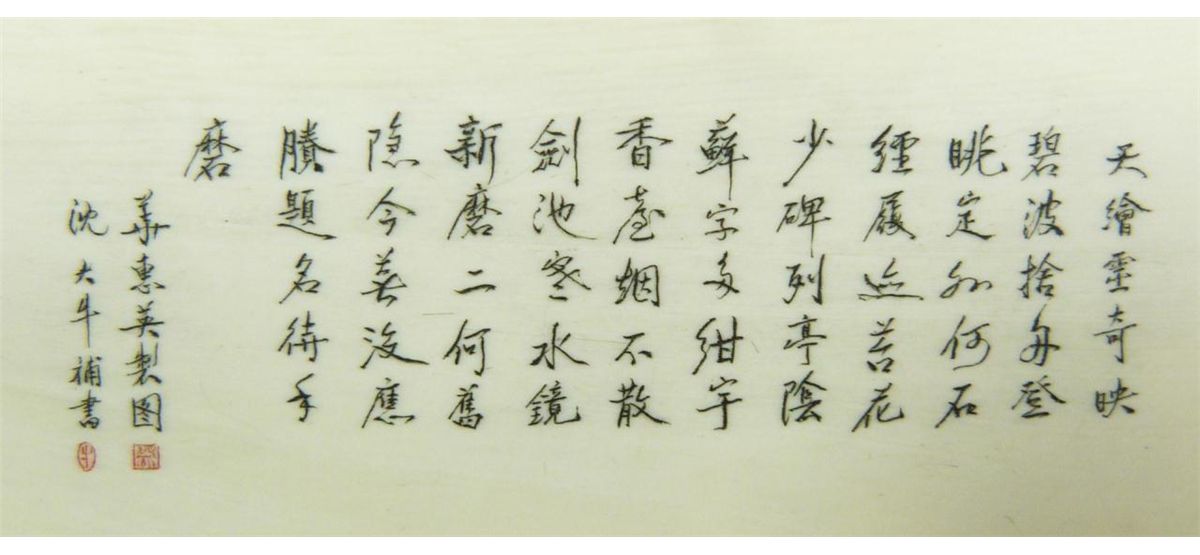 天繪靈奇映
碧波捨舟登
眺定如何石
經履迹苔花
少碑列亭陰
蘚字多紺宇
香臺烟不散
劍池寒水鏡
新磨二何舊
隱今蕪沒應
賸題名待手
磨
華惠英製图
沈大牛補書